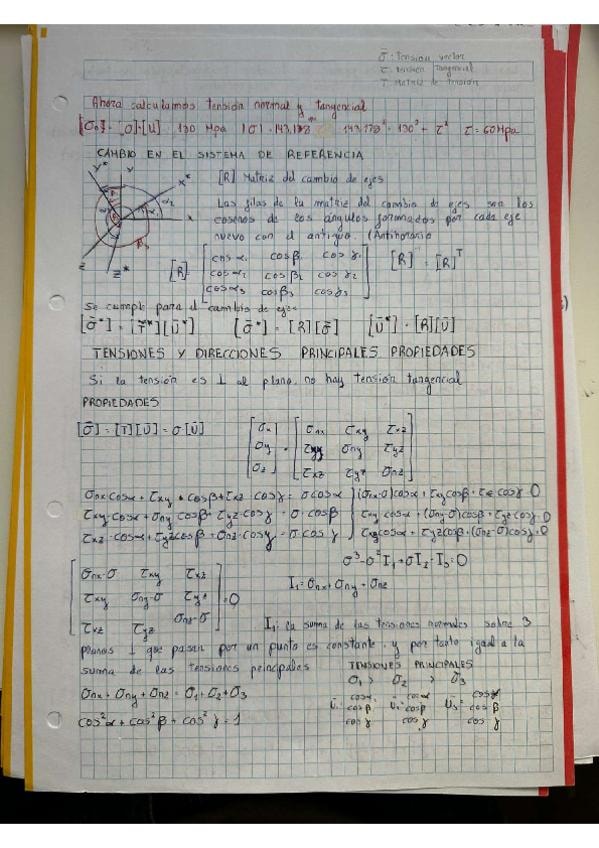 σ̄: Tension vector
τ: tension tangencial
T: Matriz de tensión
Ahora calculamos tensión normal y tangencial
[σn] = [σ]·[U] = 130 Mpa |σ| = 143,178 143,178² = 130² + τ² τ = 60 Mpa
CAMBIO EN EL SISTEMA DE REFERENCIA
y* y x*
[R] Matriz del cambio de ejes
x
z z*
Las filas de la matriz del cambio de ejes son los
cosenos de los ángulos formados por cada eje
nuevo con el antiguo. (Antihorario
[R] = [cos α₁ cos β₁ cos γ₁
cos α₂ cos β₂ cos γ₂
cos α₃ cos β₃ cos γ₃]
[R] = [R]ᵀ
Se cumple para el cambio de ejes
[σ̄*] = [T̄*][Ū*] [σ̄*] = [R][σ̄] [Ū*] = [R][Ū]
TENSIONES Y DIRECCIONES PRINCIPALES PROPIEDADES
Si la tensión es ⊥ al plano, no hay tensión tangencial
PROPIEDADES
[σ̄] = [T][Ū] = σ[Ū]
[σx σy σz] = [σnx τxy τxz
τxy σny τyz
τxz τyz σnz]
σnx·cosα + τxy·cosβ + τxz·cosγ = σ cosα } (σnx-σ)cosα + τxy cosβ + τxz cosγ = 0
τxy·cosα + σny cosβ + τyz·cosγ = σ·cosβ } τxy cosα + (σny-σ)cosβ + τyz cosγ = 0
τxz·cosα + τyz cosβ + σnz·cosγ = σ cos γ } τxz cosα + τyz cosβ + (σnz-σ)cosγ = 0
σ³ - σ²I₁ + σI₂ - I₃ = 0
[σnx-σ τxy τxz
τxy σny-σ τyz
τxz τyz σnz-σ] = 0
I₁ = σnx + σny + σnz
I₁: la suma de las tensiones normales sobre 3
planos ⊥ que pasan por un punto es constante, y por tanto igual a la
suma de las tensiones principales
TENSIONES PRINCIPALES
σ₁ > σ₂ > σ₃
σnx + σny + σnz = σ₁ + σ₂ + σ₃
Ū₁ = cosα cosβ cosγ Ū₂ = cosα cosβ cosγ Ū₃ = cosα cosβ cosγ
cos²α + cos²β + cos²γ = 1